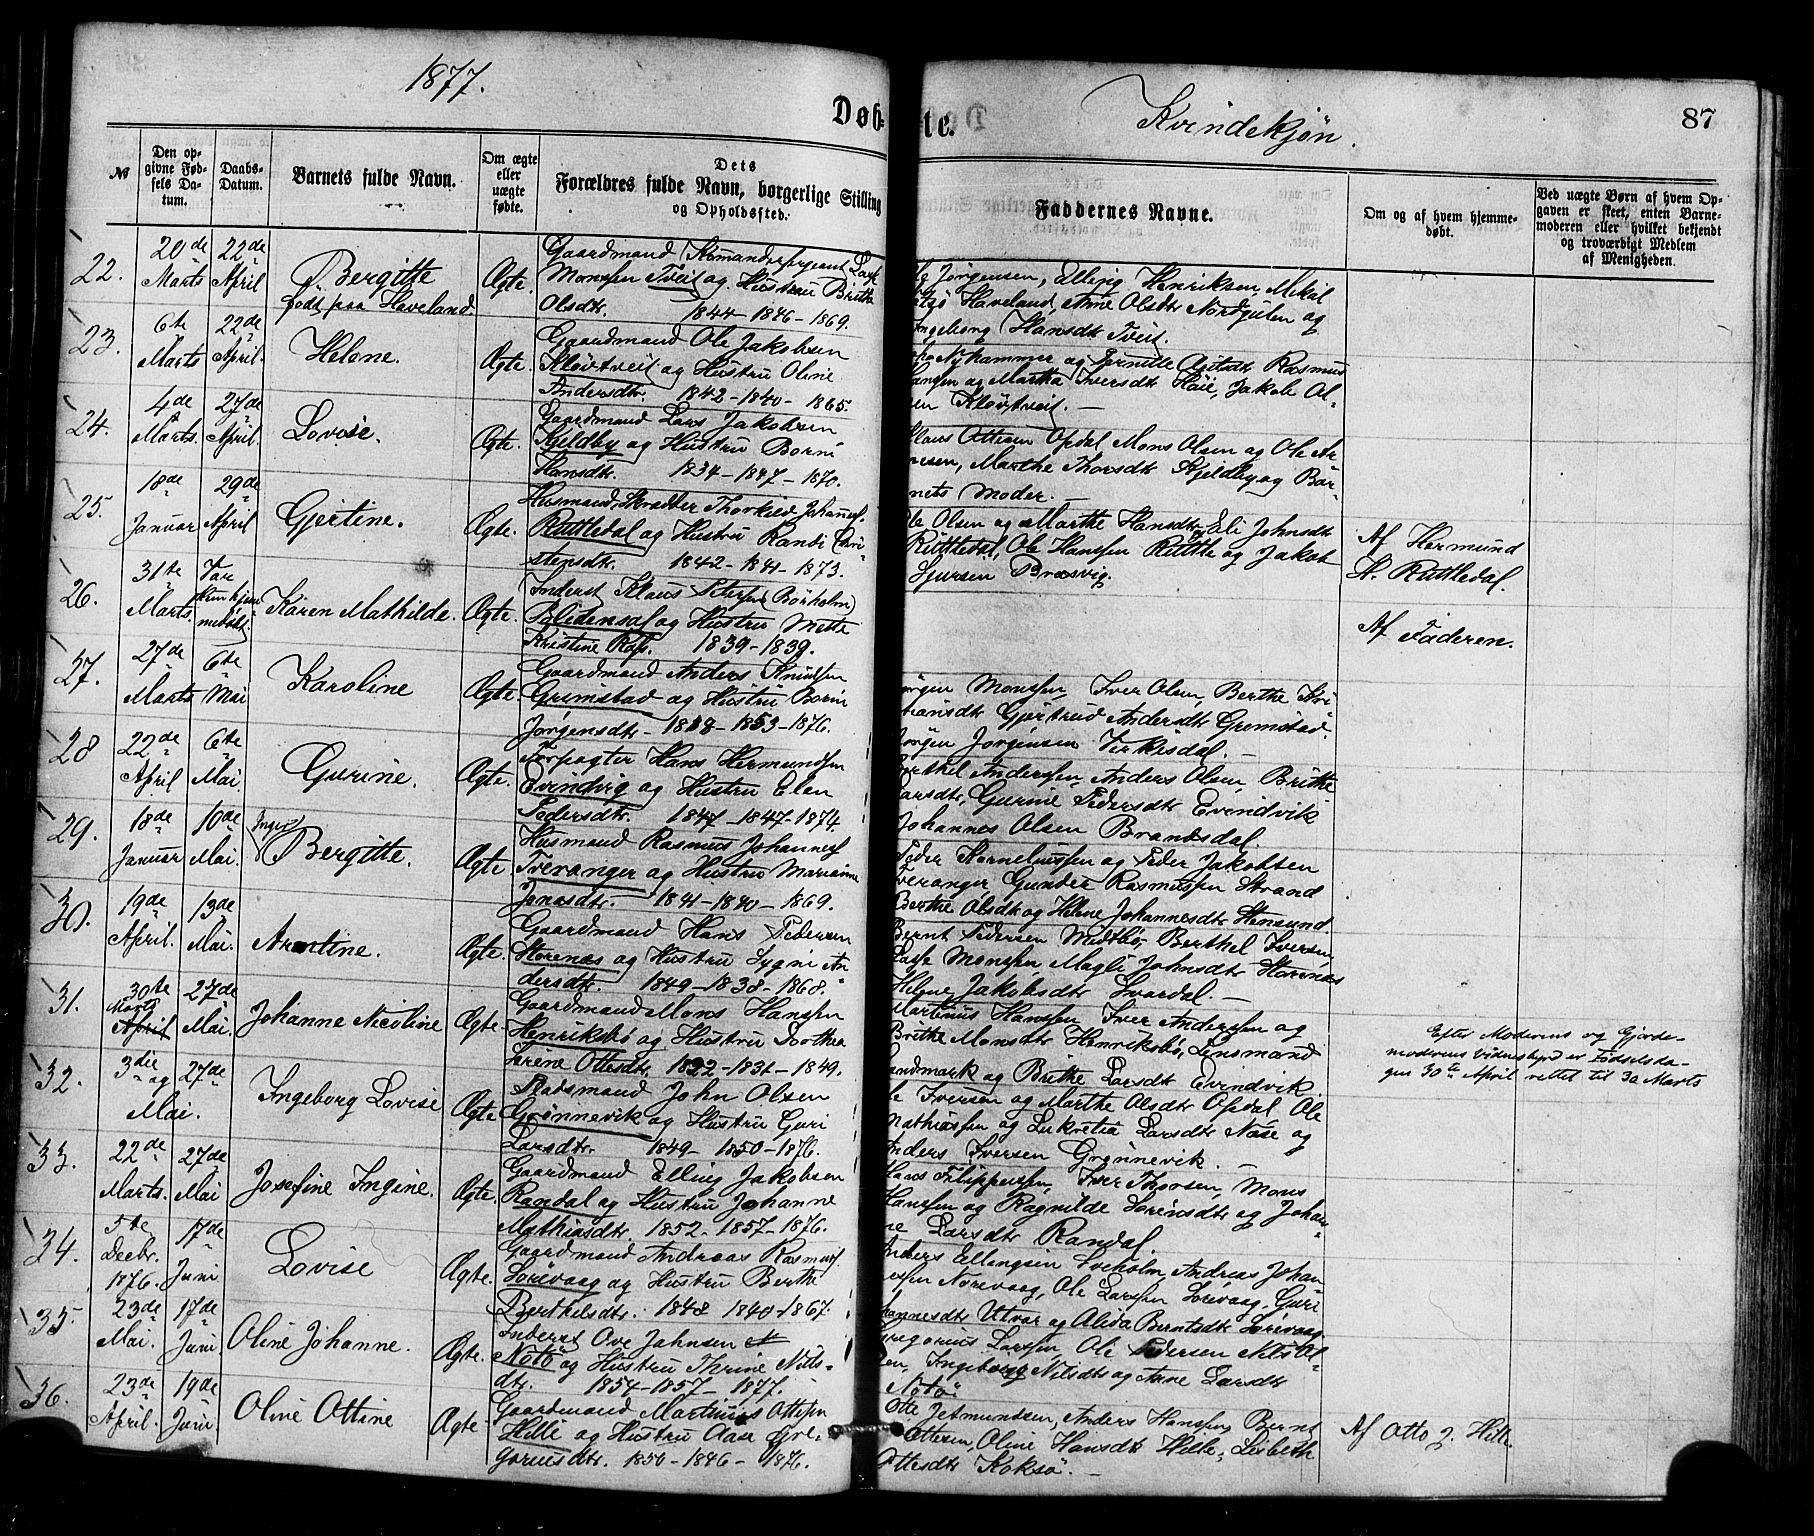 1877.
Døb-
te.
Kvindekjøn.
87
№
Den op-
givne Fød-
sels Da-
tum.
Daabs-
Datum.
Barnets fulde Navn.
Om ægte
eller
uægte
fødte.
Dets
Forældres fulde Navn, borgerlige Stilling
og Opholdssted.
Faddernes Navne.
Om og af hvem hjemme-
døbt.
Ved uægte Børn af hvem Op-
gaven er skeet, enten Barne-
moderen eller hvilket bekjendt
og troværdigt Medlem
af Menigheden.
22.
20de Marts
22de April
Bergitte
født paa Haveland
Ægte.
Gaardmand Komandersergeant Lasse
Monssen Tveit og Hustru Brithe
Olsdtr. 1844-1846-1869.
Jørgensen, Elling Henriksen, Mikal
Haveland, Anne Olsdtr Nordgulen og
Ingeborg Hansdtr Tveit.
23.
6te Marts
22de April.
Helene.
Ægte.
Gaardmand Ole Jakobsen
Kløvtveit og Hustru Oline
Andersdtr. 1842-1840-1865.
Nyhammer og Pernille Rasmus
Hangen og Martha Iversdtr Høie, Jakob Ol-
sen Kløvtveit. —
24.
4de Marts.
27de April.
Lovise.
Ægte.
Gaardmand Lars Jakobsen
Kjeldby og Hustru Borni
Hansdtr. 1834-1847-1870.
Klaus Ottesen Opdal Mons Olsen og Ole Ar
nesen, Marthe Thorsdtr Kjeldby og Bar-
nets Moder. —
25.
18de Januar
29de April
Gjertine.
Ægte.
Husmand, Skrædder Thorkild Johannes.
Ruttledal og Hustru Randi Chri-
stensdtr. 1842-1841-1873.
Ole Olsen og Marthe Hansdtr, Eli Johnsdtr
Ruttledal, Ole Hanssen Rutle og Jakob
Sjursen Bræsvig.
Af Hermund
A. Ruttledal.
26.
31te Marts.
Var
kun hjem-
medøbt.
Karen Mathilde.
Ægte.
Inderst Klaus Petersen (Børholm)
Eidensal og Hustru Mette
Kristine Rafs. 1839-1839.
Af Faderen.
27.
27de Marts
6te Mai
Karoline
Ægte.
Gaardmand Anders Knutsen
Grimstad og Hustru Borni
Jørgensdtr - 1848-1853-1876.
Jørgen Monssen, Iver Olsen, Berthe Kri-
stiansdtr Gjertrud Andersdtr Gremstad.
Jørgen Jørgensen Virkesdal. —
28
22de April
6te Mai
Gurine.
Ægte.
Forpagter Hans Hermundsen
Evindvig og Hustru Elen
Pedersdtr. 1847-1847-1874.
Berthel Anderssen, Anders Olsen, Brithe
Larsdtr, Gurine Pedersdtr Evindvik
Johannes Olsen Brandsdal.
29.
18de Januar
10de Mai.
Inger
Bergitte.
Ægte
Husmand Rasmus Johannes
Tveranger og Hustru Marianne
Jonasdtr. 1841-1840-1869.
Peder Korneliussen og Peder Jakobsen
Tveranger Gunder Rasmussen Strand
Berthe Olsdtr og Helene Johannesdtr Stensund.
30.
19de April.
13de Mai.
Arntine.
Ægte.
Gaardmand Hans Pedersen
Storenæs og Hustru Sygni An
dersdtr. 1849-1838-1868.
Bernt Pedersen Midtbø, Berthel Iversen,
Lasse Monssen, Magli Johnsdtr Storenæs
Helene Jakobsdtr Svardal. —
31.
30te
Marts
April
27de Mai.
Johanne Nicoline
Ægte
Gaardmand Mons Hanssen
Henriksbø og Hustru Dorthea
Serene Ottesdtr, 1822-1831-1849.
Martinus Hanssen Iver Andersen og
Brithe Monsdtr Henriksbø, Lensmand
Landmark og Brithe Larsdtr Evindvik
Efter Moderens og Gjorde-
moderens Vidnesbyrd er Fødselsda-
gen 30te April rettet til 30 Marts
32.
3die og
Mai.
27de
Ingeborg Lovise
Ægte
Pladsmand John Olsen
Grønnevik og Hustru Guri
Larsdtr. 1849-1850-1876.
Ole Iversen og Marthe Olsdtr Opdal Ole
Mathiassen og Lukretia Larsdtr Næse og
Anders Iversen Grønnevik. —
33.
22de Marts.
27de Mai
Josefine Ingine.
Ægte.
Gaardmand Elling Jakobsen
Randal og Hustru Johanne
Mathiasdtr. 1852-1857-1876.
Hans Filippessen, Iver Thorsen, Mons
Hanssen og Ragnilde Sørensdtr og Johan-
ne Larsdtr Randal.
34.
5te
Decbr.
1876.
17de Juni
Lovise
Ægte.
Gaardmand Andreas Rasmus
Sørevaag og Hustru Berthe
Berthelsdtr. 1848 1840-1867.
Anders Ellingsen Sveholm, Andreas Johan-
nessen Norevaag, Ole Larssen Sørevaag, Guri
Johannesdtr Utvær og Alida Berntsdtr Sørevaag.
35.
23de Mai.
17de Juni
Oline Johanne.
Ægte.
Inderst Ove Jahnsen
Notø og Hustru Thrine Nils-
dtr. 1854-1857-1877.
Gregorius Larssen, Ole Pedersen Nils Ol-
sen, Ingeborg Nilsdtr og Anne Larsdtr
Notø.
36.
23de April.
19de Juni.
Oline Ottine
Ægte.
Gaardmand Martinus Ottesen
Hille og Hustru Aase Gre-
goriusdtr. 1850-1846-1876.
Otte Jetmundsen, Anders Hanssen, Bernt
Ottesen, Oline Hansdtr Hille, Lisbeth
Ottesdtr Koksø. —
Af Otto J. Hille.